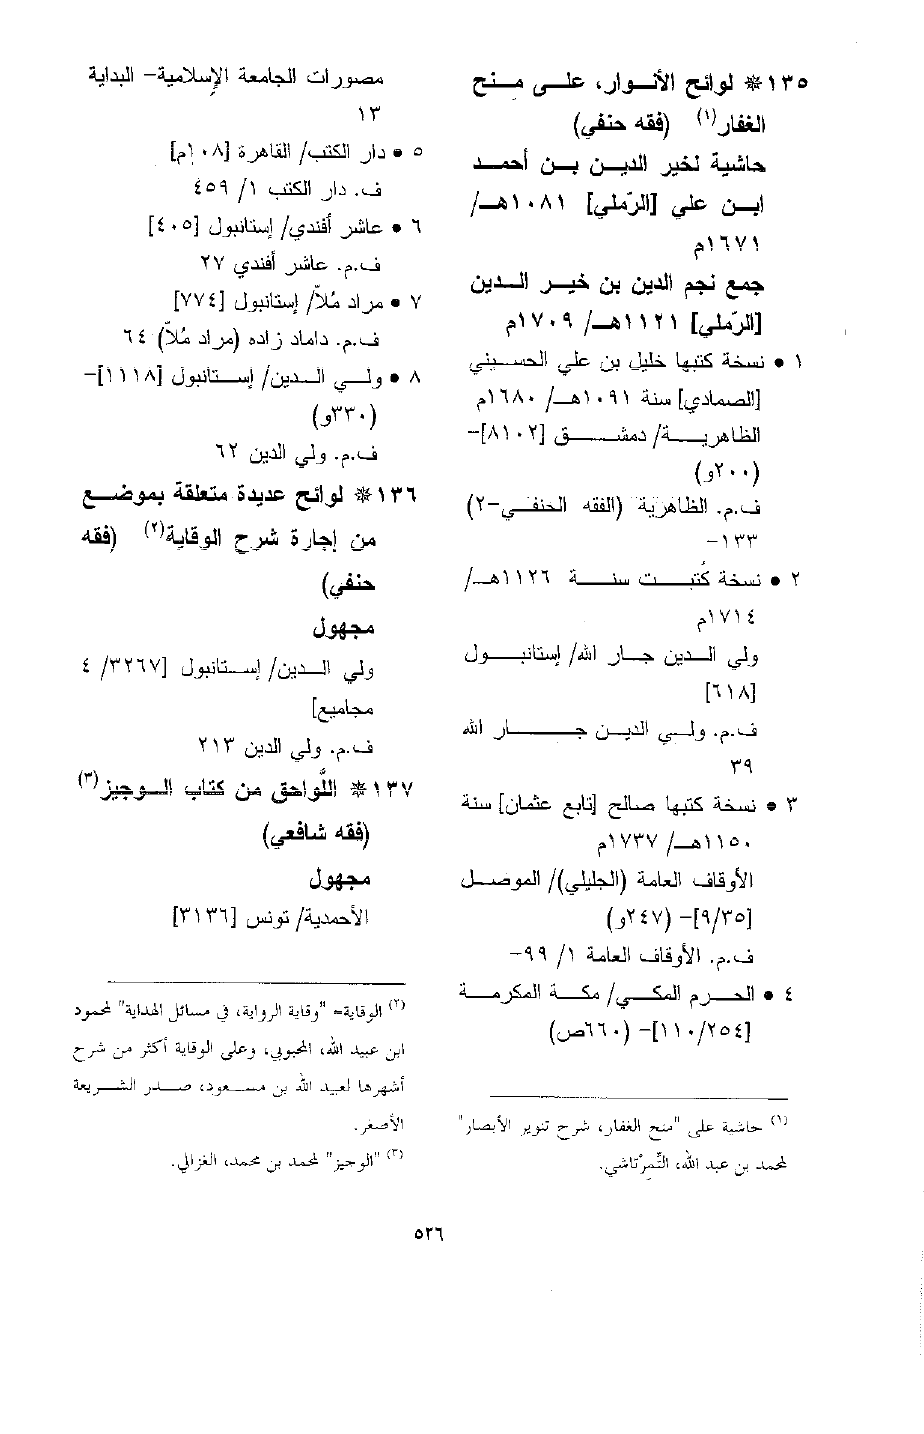 ١٣٥ * لوائح الأنوار، على منح
الغفار(١) (فقه حنفي)
حاشية لخير الدين بن أحمد
ابن علي [الرّملي] ١٠٨١هـ/
١٦٧١م
جمع نجم الدين بن خير الدين
[الرّملي] ١١٢١هـ/ ١٧٠٩م
١ • نسخة كتبها خليل بن علي الحسيني
[الصمادي] سنة ١٠٩١هـ/ ١٦٨٠م
الظاهرية/ دمشق [٨١٠٢]-
(٢٠٠و)
ف.م. الظاهرية (الفقه الحنفي-٢)
١٣٣-
٢ • نسخة كُتبت سنة ١١٢٦هـ/
١٧١٤م
ولي الدين جار الله/ إستانبول
[٦١٨]
ف.م. ولي الدين جار الله
٣٩
٣ • نسخة كتبها صالح [تابع عثمان] سنة
١١٥٠هـ/ ١٧٣٧م
الأوقاف العامة (الجليلي)/ الموصل
[٩/٣٥]- (٢٤٧و)
ف.م. الأوقاف العامة ١/ ٩٩-
٤ • الحرم المكي/ مكة المكرمة
[١١٠/٢٥٤]- (٦٦٠ص)
(١) حاشية على "منح الغفار، شرح تنوير الأبصار"
لمحمد بن عبد الله، التِّمِرْتاشي.
مصورات الجامعة الإسلامية- البداية
١٣
٥ • دار الكتب/ القاهرة [١٠٨م]
ف. دار الكتب ١/ ٤٥٩
٦ • عاشر أفندي/ إستانبول [٤٠٥]
ف.م. عاشر أفندي ٢٧
٧ • مراد مُلاّ/ إستانبول [٧٧٤]
ف.م. داماد زاده (مراد مُلاّ) ٦٤
٨ • ولي الدين/ إستانبول [١١١٨]-
(٣٣٠و)
ف.م. ولي الدين ٦٢
١٣٦ * لوائح عديدة متعلقة بموضع
من إجارة شرح الوقاية(٢) (فقه
حنفي)
مجهول
ولي الدين/ إستانبول [٣٢٦٧/ ٤
مجاميع]
ف.م. ولي الدين ٢١٣
١٣٧ * اللَّواحق من كتاب الوجيز(٣)
(فقه شافعي)
مجهول
الأحمدية/ تونس [٣١٣٦]
(٢) الوقاية= "وقاية الرواية، في مسائل الهداية" لمحمود
ابن عبيد الله، المحبوبي، وعلى الوقاية أكثر من شرح
أشهرها لعبيد الله بن مسعود، صدر الشريعة
الأصغر.
(٣) "الوجيز" لمحمد بن محمد، الغزالي.
٥٢٦